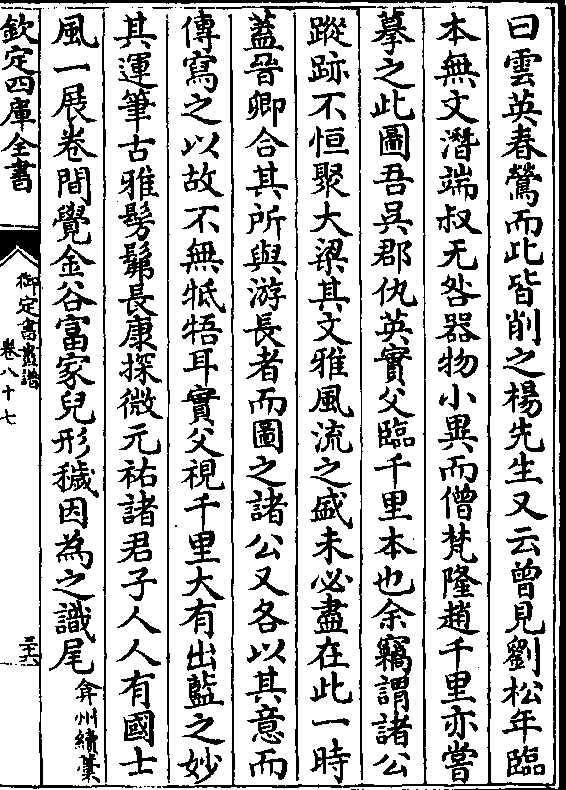 曰雲英春鶯而此皆削之楊先生又云曾見劉松年臨
本無文潛端叔无咎器物小異而僧梵隆趙千里亦嘗
摹之此圖吾吳郡仇英實父臨千里本也余竊謂諸公
蹤跡不恒聚大梁其文雅風流之盛未必盡在此一時
蓋晉卿合其所與游長者而圖之諸公又各以其意而
傳寫之以故不無牴牾耳實父視千里大有出藍之妙
其運筆古雅髣髴長康探微元祐諸君子人人有國士
風一展卷間覺金谷富家兒形穢因為之識尾弇州續藁
欽定四庫全書
御定書畫譜
卷八十七
三六